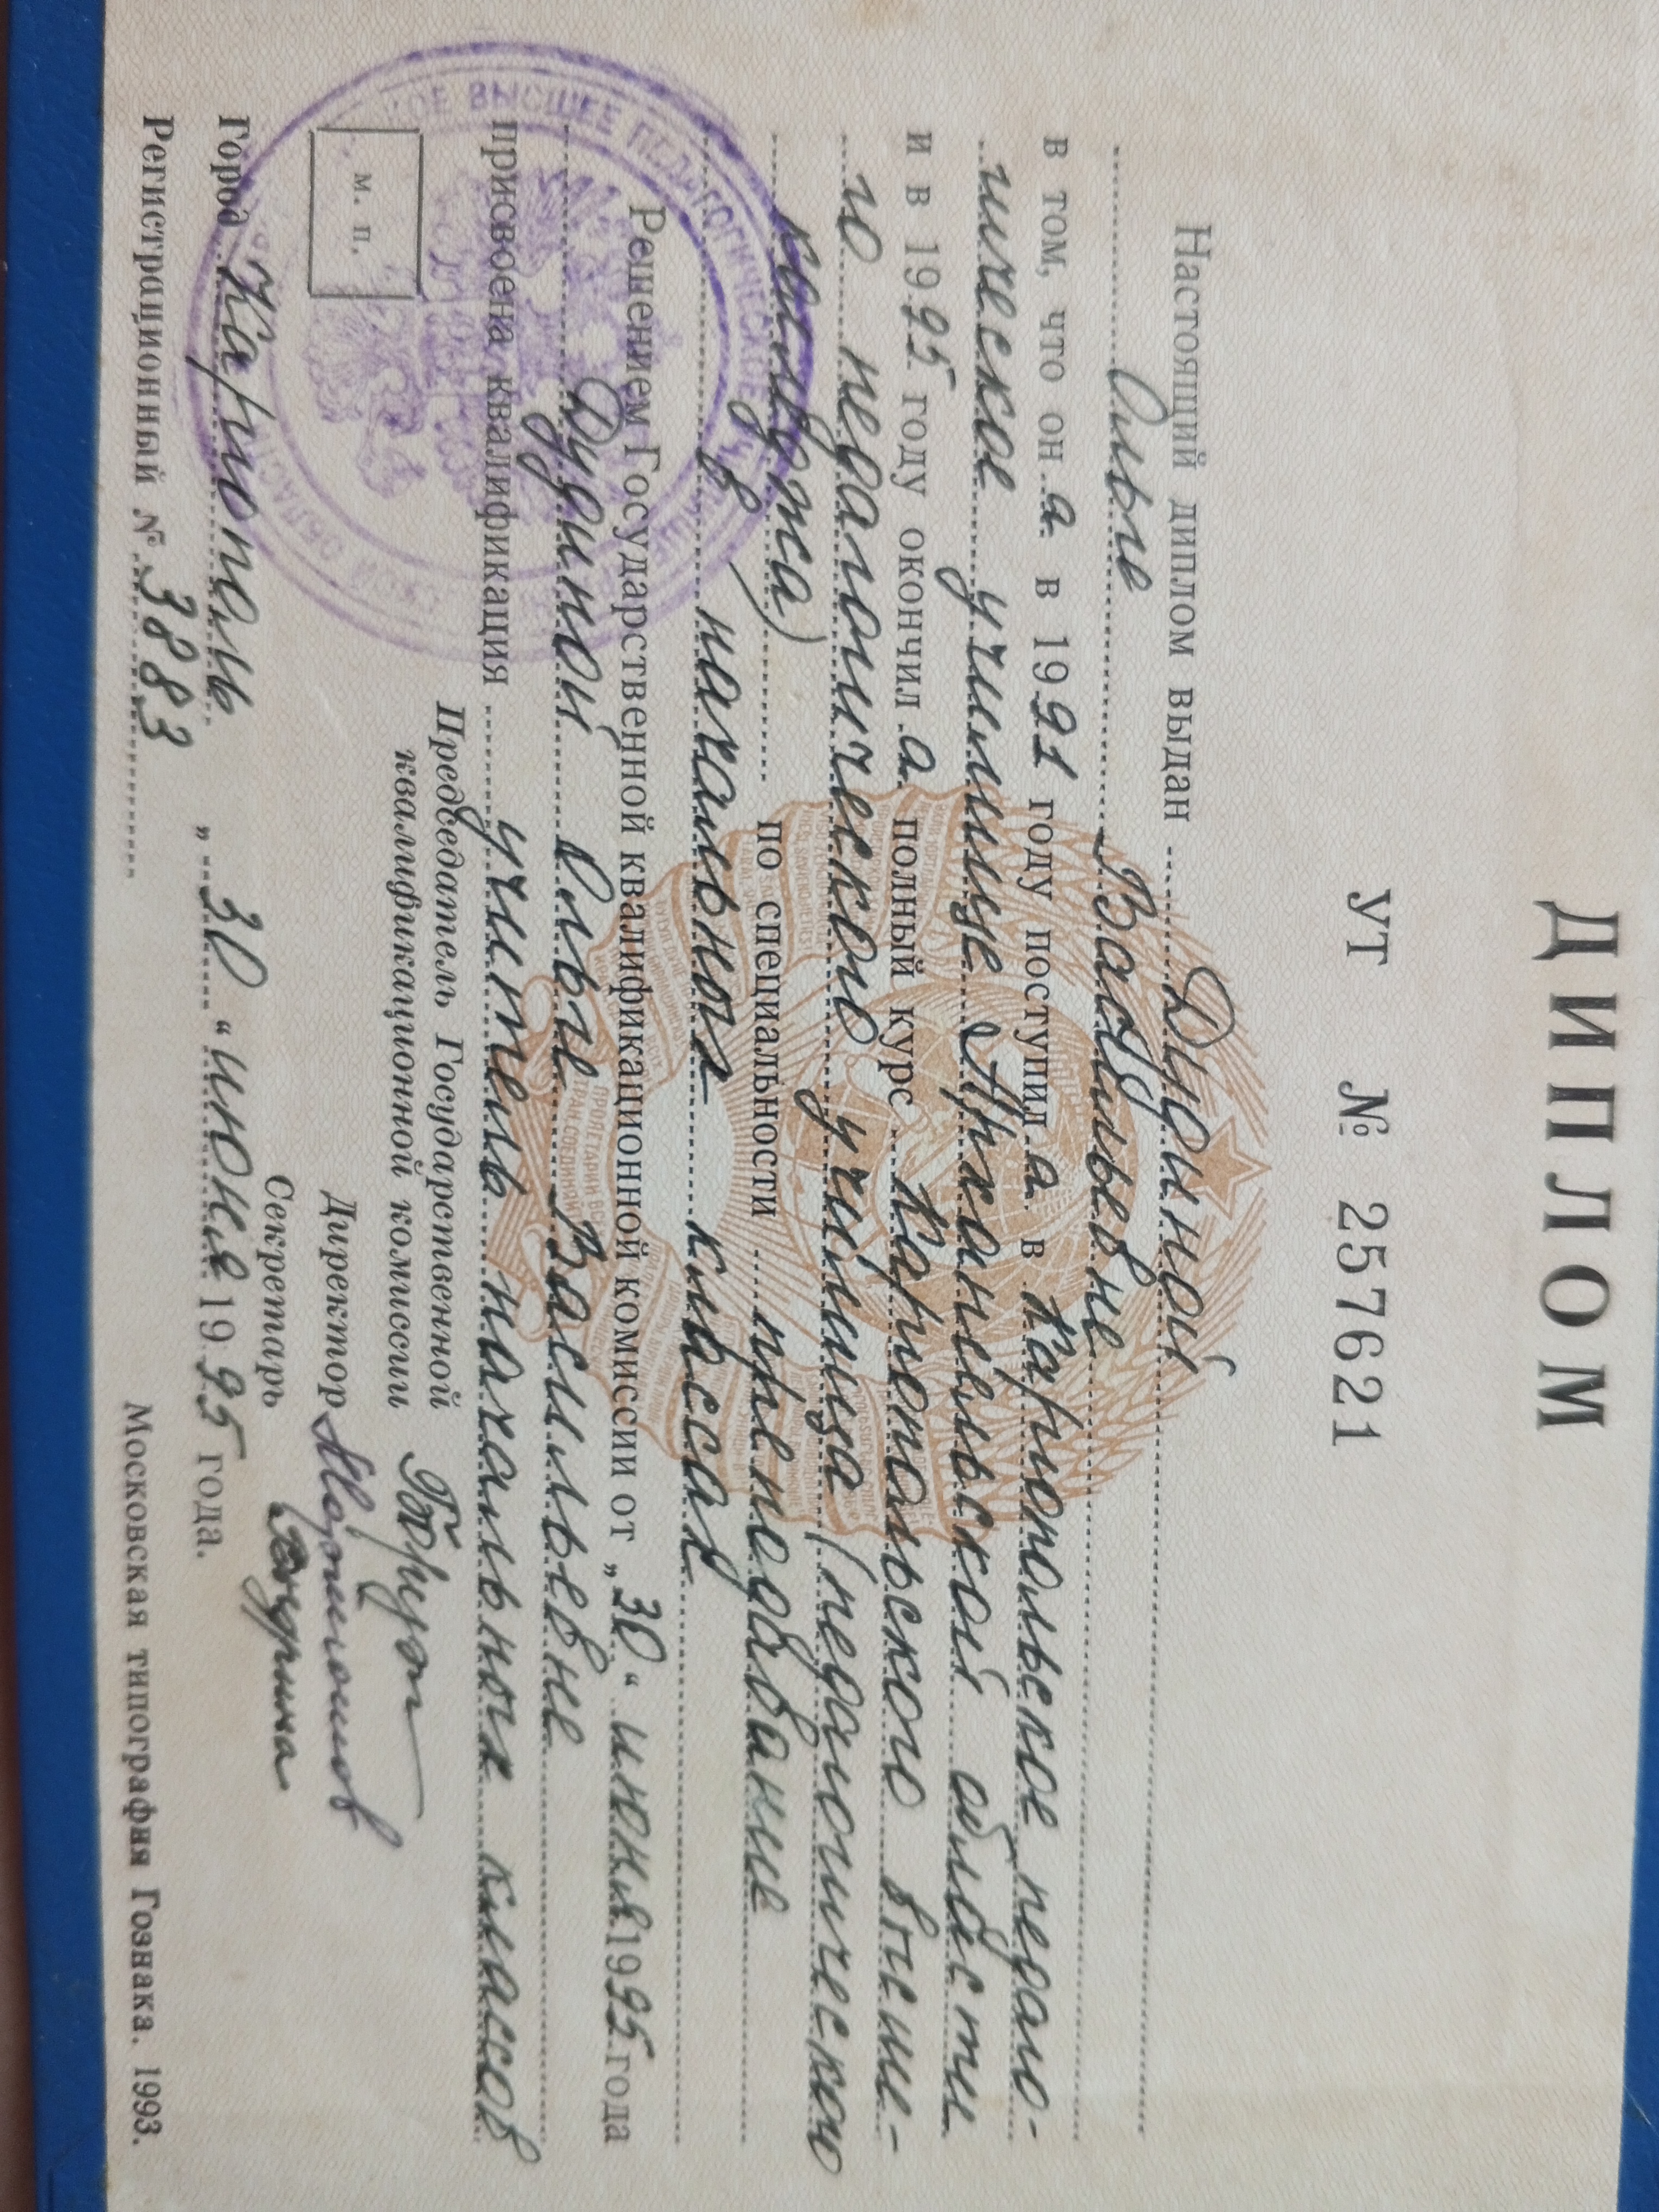 ДИПЛОМ
УТ № 257621
Настоящий диплом выдан Дудиной
Ольге Васильевне
в том, что он а в 1991 году поступил а в Каргопольское педаго-
гическое училище Архангельской области
и в 1995 году окончил а полный курс Каргопольского высше-
го педагогического училища (педагогического
колледжа) по специальности преподавание
в начальных классах
Решением Государственной квалификационной комиссии от „30“ июня 1995 года
Дудиной Ольге Васильевне
присвоена квалификация учитель начальных классов
Председатель Государственной
квалификационной комиссии
м. п.
Директор
Секретарь
Город Каргополь „30“ июня 1995 года.
Регистрационный № 3883
Московская типография Гознака. 1993.
ВЫСШЕЕ ПЕДАГОГИЧЕСКОЕ